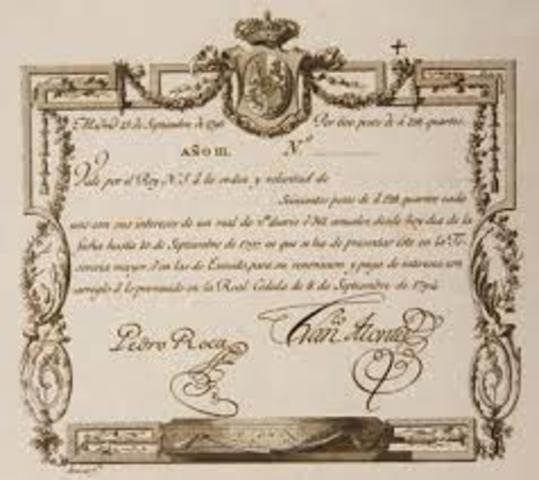 Madrid 15 de Septiembre de 1796. Por 600 pesos de á 128 quartos.
AÑO III. N.º
Vale por el Rey N. S. á la orden y voluntad de
Seiscientos pesos de á 128 quartos cada
uno con sus intereses de un real de v.ⁿ diario ó 365 anuales desde hoy dia de la
fecha hasta 10 de Septiembre de 1797 en que se ha de presentar éste en la Te-
soreria mayor, ó en las de Exército, para su renovacion y pago de intereses con
arreglo á lo prevenido en la Real Cédula de 8 de Septiembre de 1794.
Pedro Roca Fran.co